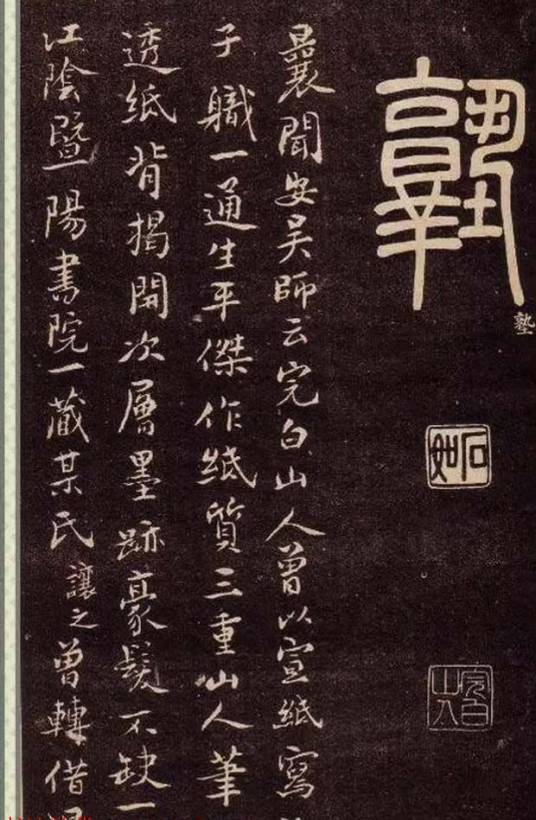 塾
塾
石如
完白山人
曩聞安吳師云完白山人曾以宣紙寫
子職一通生平傑作紙質三重山人筆
透紙背揭開次層墨跡豪髮不缺一
江陰暨陽書院一藏某氏讓之曾轉借